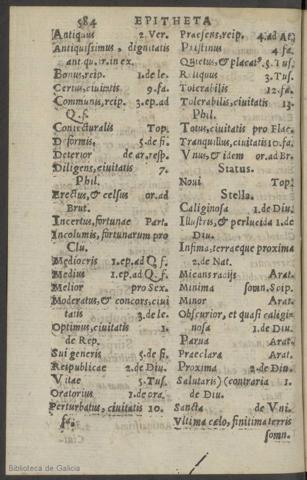 584 EPITHETA
Antiquus 2. Ver.
Antiquissimus, dignitatis
ant qu. ir. in ex.
Bonus, reip. 1. de le.
Certus, ciuitatis 9. fa.
Communis, reip. 3. ep. ad
Q. f.
Coniecturalis Top.
D formis, 5. de fi.
Deterior de ar. resp.
Diligens, ciuitatis 7.
Phil.
Erectus, & celsus or. ad
Brut.
Incertus, fortunae Part.
Incolumis, fortunarum pro
Clu.
Mediocris 1. ep. ad Q. f.
Medius 1. ep. ad Q. f.
Melior pro Sex.
Moderatus, & concors, ciui
tatis 3. de le.
Optimus, ciuitatis 1.
de Rep.
Sui generis 5. de fi.
Reipublicae 2. de Diu.
Vitae 5. Tus.
Oratorius 1. de ora.
Perturbatus, ciuitatis 10.
fa.
Praesens, reip. 4. ad At.
Pristinus 4. fa.
Quietus, & placat⁹. 5. Tus.
Reliquus 3. Tus.
Tolerabilis 12. fa.
Tolerabilis, ciuitatis 13.
Phil.
Totus, ciuitatis pro Flac.
Tranquillus, ciuitatis 10. fa.
Vnus, & idem or. ad Br.
Status.
Noui Top.
Stella.
Caliginosa 1. de Diu.
Illustris, & perlucida 1. de
Diu.
Infima, terraeque proxima
2. de Nat.
Micans radijs Arat.
Minima somn. Scip.
Minor Arat.
Obscurior, et quasi caligi-
nosa 1. de Diu.
Parua Arat.
Praeclara Arat.
Proxima 2. de Diu.
Salutaris) (contraria 1.
de Diu.
Sancta de Vni.
Vltima caelo, finitima terris
somn.
Biblioteca de Galicia